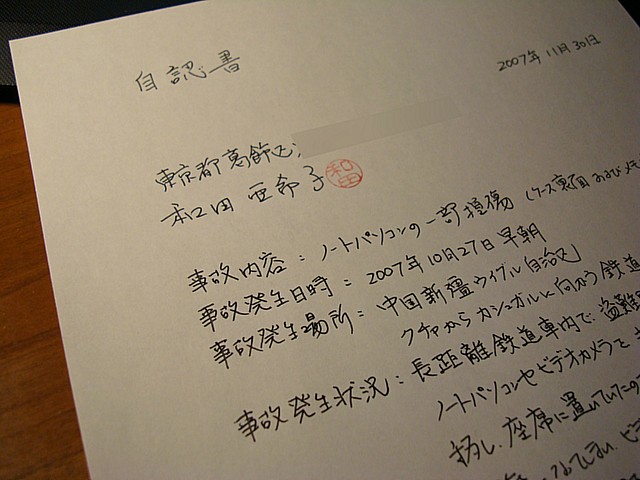 自認書
2007年11月30日
東京都葛飾区
和田 亜希子 和田
事故内容：ノートパソコンの一部損傷（ケース裏面 および
事故発生日時：2007年10月27日早朝
事故発生場所：中国新疆ウイグル自治区
クチャからカシュガルに向かう鉄道
事故発生状況：長距離鉄道車内で、盗難
ノートパソコンやビデオカメラを
し、座席に置いていたの